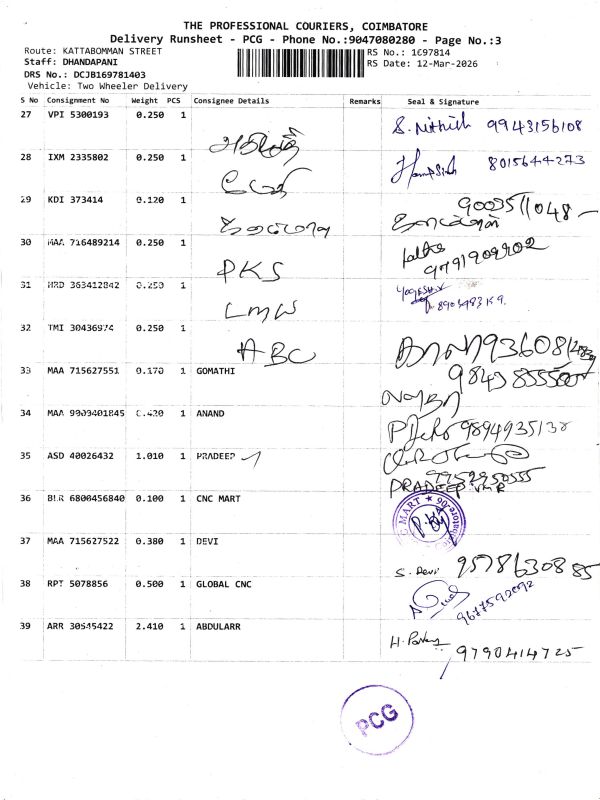 THE PROFESSIONAL COURIERS, COIMBATORE
Delivery Runsheet - PCG - Phone No.:9047080280 - Page No.:3
Route: KATTABOMMAN STREET
Staff: DHANDAPANI
DRS No.: DCJB169781403
Vehicle: Two Wheeler Delivery
RS No.: 1697814
RS Date: 12-Mar-2026
S No Consignment No Weight PCS Consignee Details Remarks Seal & Signature
27 VPI 5300193 0.250 1 S. Nithish 9943156108
28 IXM 2335802 0.250 1 8015644273
29 KDI 373414 0.120 1 9003511048
30 MAA 716489214 0.250 1 PKS Laltha 9791909202
31 HRD 363412842 0.250 1 LMW
32 TMI 30436974 0.250 1 ABC
33 MAA 715627551 0.170 1 GOMATHI
34 MAA 9909401845 0.420 1 ANAND 9894935138
35 ASD 40026432 1.010 1 PRADEEP PRADEEP
36 BLR 6800456840 0.100 1 CNC MART
37 MAA 715627522 0.380 1 DEVI S. Devi 9578630885
38 RPT 5078856 0.500 1 GLOBAL CNC 9677592092
39 ARR 30545422 2.410 1 ABDULARR 9790414725
PCG